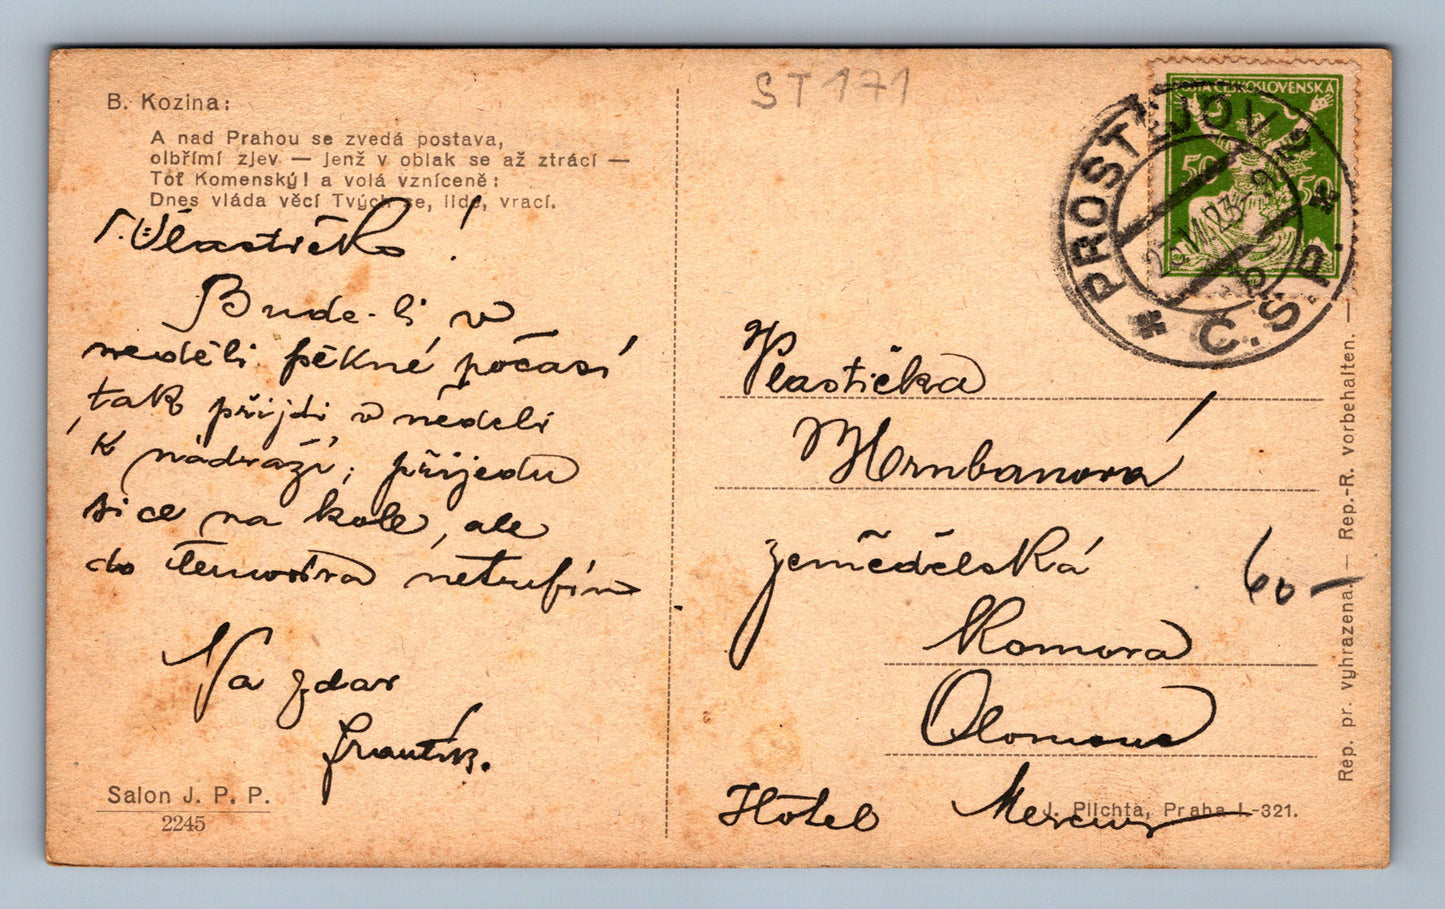 B. Kozina:
A nad Prahou se zvedá postava,
olbřímí zjev — jenž v oblak se až ztrácí —
Toť Komenský! a volá vzníceně:
Dnes vláda věcí Tvých se, lide, vrací.
Vlastičko!
Bude-li v
neděli pěkné počasí
tak přijdi v neděli
k nádraží, přijedu
sice na kole, ale
do
Na zdar
Frantík.
Salon J. P. P.
2245
ST171
ČESKOSLOVENSKÁ
50 50
PROSTĚJOV 2
Č.S.P.
Vlastička
Hrnbanová
zemědělská
Komora
Olomouc
Hotel Mercur
60-
J. Plichta, Praha I.-321.
Rep. pr. vyhrazena. — Rep.-R. vorbehalten. —